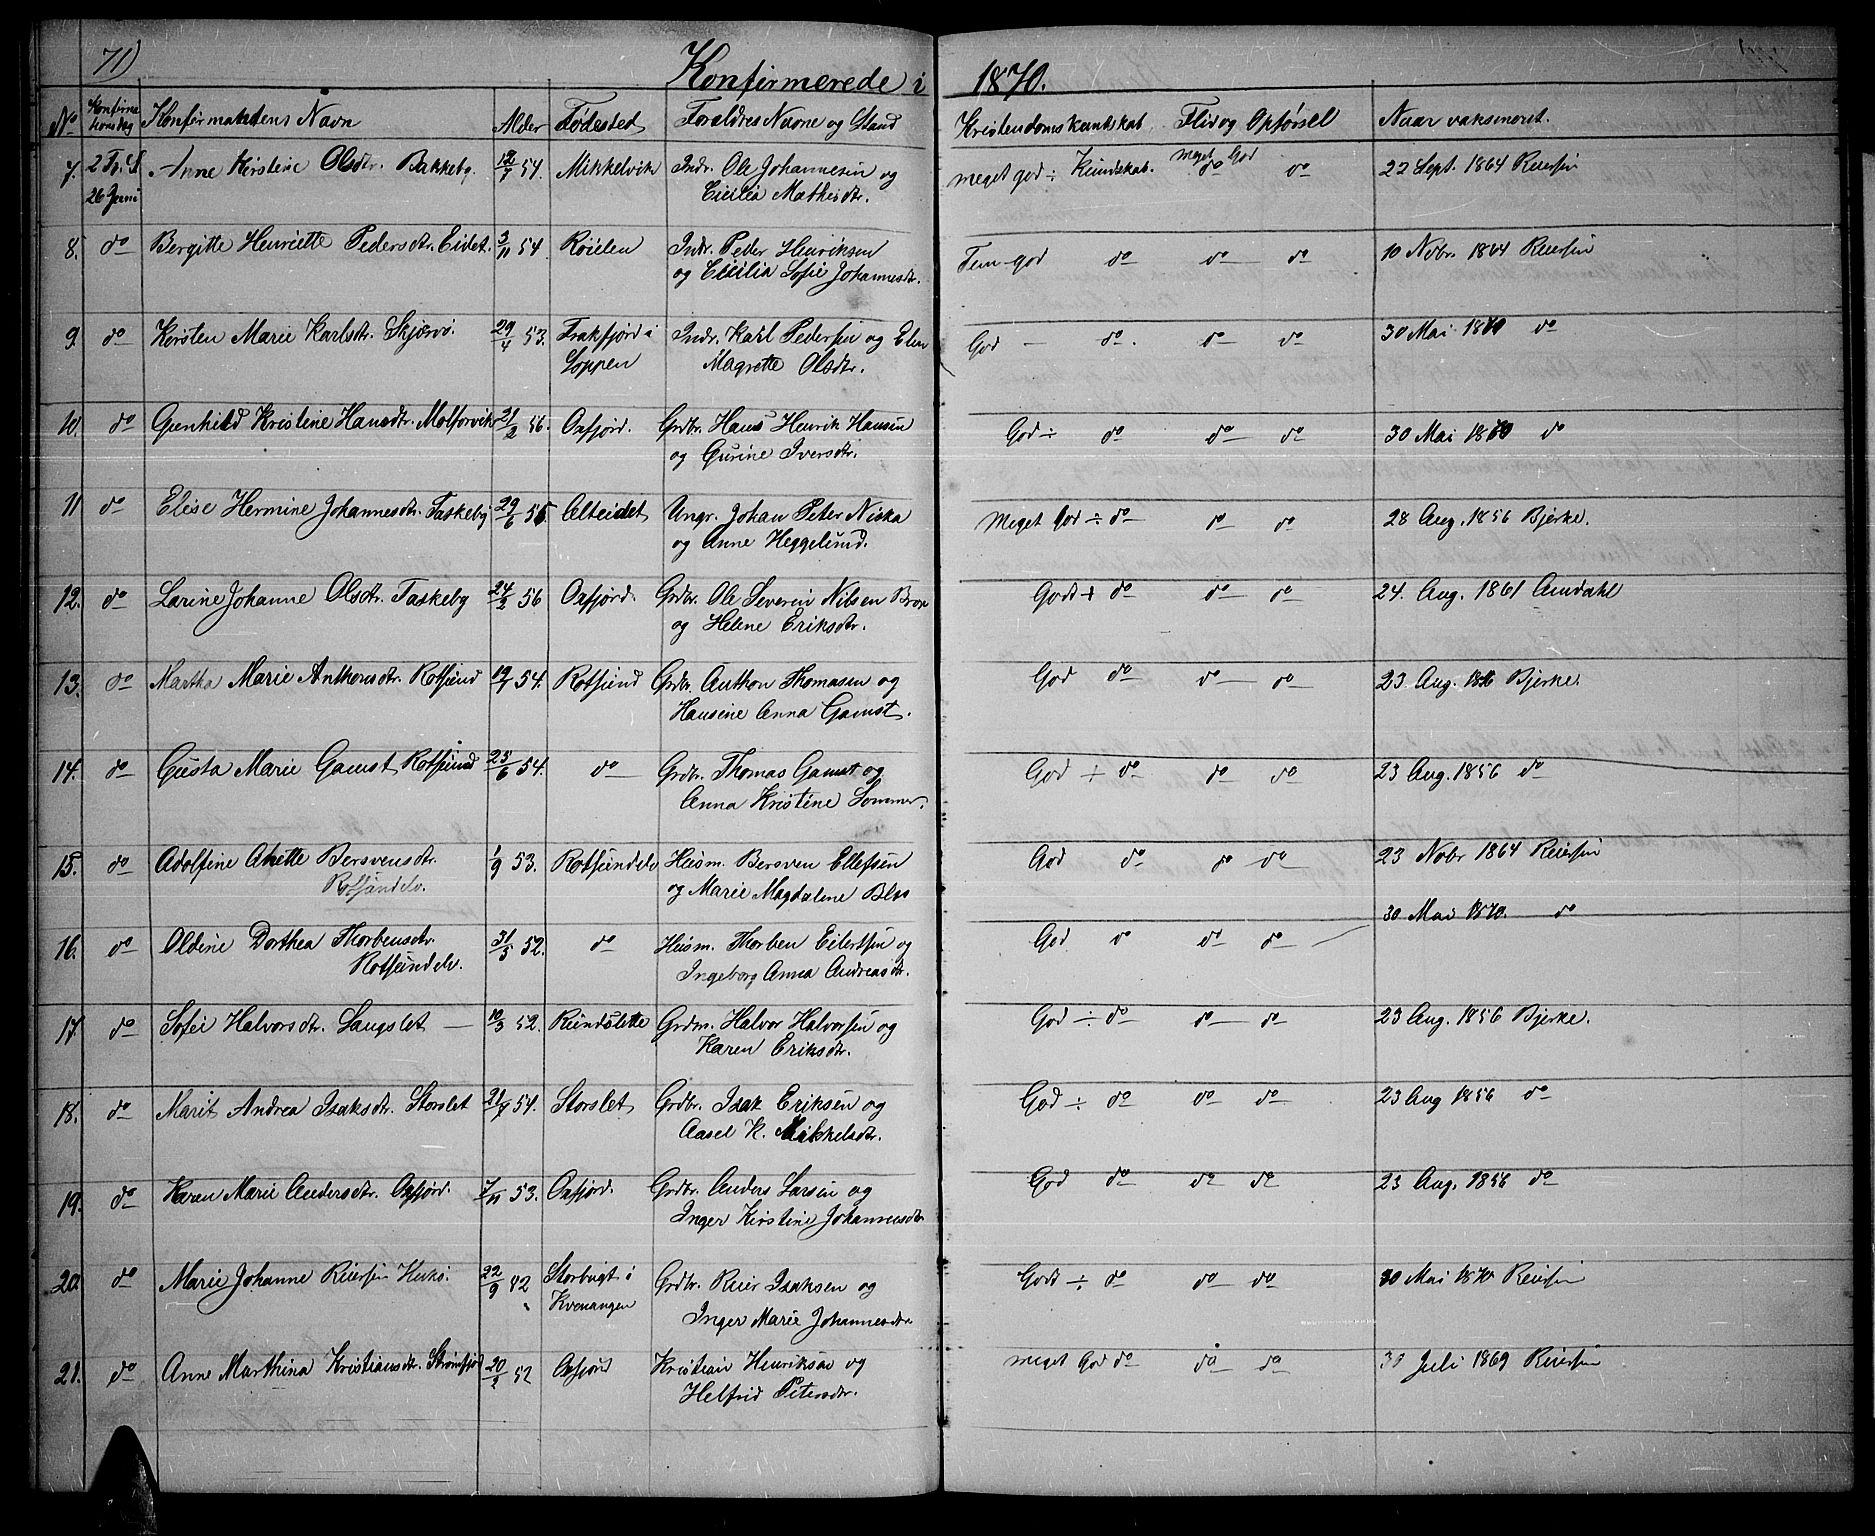 71)
Konfirmerede i 1870.
No Konfirmationsdag Konfirmandens Navn Alder Fødested Foraldres Navne og Stand Kristendomskundskab Flid og Opførsel Naar vaksineret.
7. 2 S. e. T. 26 Juni Anne Kirstine Olsdtr. Bakkeby. 12/7 54. Mikkelvik Indr. Ole Johannesen og meget god ÷ Kundskab. meget God do do 22 Sept. 1864 Reiersen
Cicilia Mathisdtr.
8. do Bergitte Henriette Pedersdtr. Eidet. 3/11 54. Røielen Indr. Peder Henriksen Tem-god do do do 10 Nobr. 1864 Reiersen
og Cicilia Sofie Johannesdtr.
9. do Kirsten Marie Karlsdtr. Skjærvø. 29/4 53. Frakfjord i Indr. Karl Pedersen og Elen God — do. do do 30 Mai 1870 do
Loppen Magrette Olsdtr.
10. do Gunhild Kristine Hansdtr. Molforvik 21/2 56. Oxfjord. Grdbr. Hans Henrik Hansen God ÷ do do do 30 Mai 1870 do
og Gurine Iversdtr.
11 do Elise Hermine Johannesdtr. Taskeby 29/6 55 Alteidet Ungr. Johan Peter Niska Meget God ÷ do do do 28 Aug. 1856 Bjerke.
og Anne Heggelund.
12. do Larine Johanne Olsdtr. Taskeby 24/2 56 Oxfjord. Grdbr. Ole Severin Nilsen Brox Godt ÷ do do do 24. Aug. 1861 Amdahl
og Helene Eriksdtr.
13. do Martha Marie Anthonsdtr. Rotsund 19/1 54. Rotsund Grdbr. Anthon Thomasen og God do do do 23 Aug. 1856 Bjerke.
Hansine Anna Gamst.
14. do Gusta Marie Gamst Rotsund 25/6 54. do Grdbr. Thomas Gamst og God ÷ do do do 23 Aug. 1856 do
Anna Kristine Sommer.
15. do Adolfine Anette Bersvensdtr. 1/9 53. Rotsundelv Husm. Bersven Ellefsen God do do do 23 Nobr 1864 Reiersen
Rotsundelv. og Marie Magdalene Blos
16. do Oldine Dorthea Thorbensdtr. 31/5 52. do Husm. Thorben Eilertsen og God do do do 30 Mai 1870. do
Rotsundelv. Ingeborg Anna Andreasdtr.
17. do Sofei Halvorsdtr. Langslet — 10/3 52. Rundslette Grdm. Halvor Halvorsen og God ÷ do do do 23 Aug. 1856 Bjerke.
Karen Eriksdtr.
18. do Marit Andrea Isaksdtr. Storslet 21/7 54. Storslet Grdbr. Isak Eriksen og God ÷ do do do 23 Aug 1856 do
Aasel K. Mikkelsdtr.
19. do Karen Marie Andersdtr. Oxfjord. 7/11 53. Oxfjord. Grdbr. Anders Larsen og God do do do 23 Aug. 1856 do
Inger Kirstine Johannesdtr
20. do Marie Johanne Reiersen Hukø. 22/9 42 Storbugt i Grdbr. Reier Isaksen og Godt ÷ do do do 30 Mai 1870. Reiersen
Kvenangen Inger Marie Johannesdtr
21. do Anne Marthina Kristiansdtr. Strømfjord 20/2 52 Oxfjord Kristian Henriksen og meget God do do do 30 Juli 1869 Reiersen
Helfrid Petersdtr.